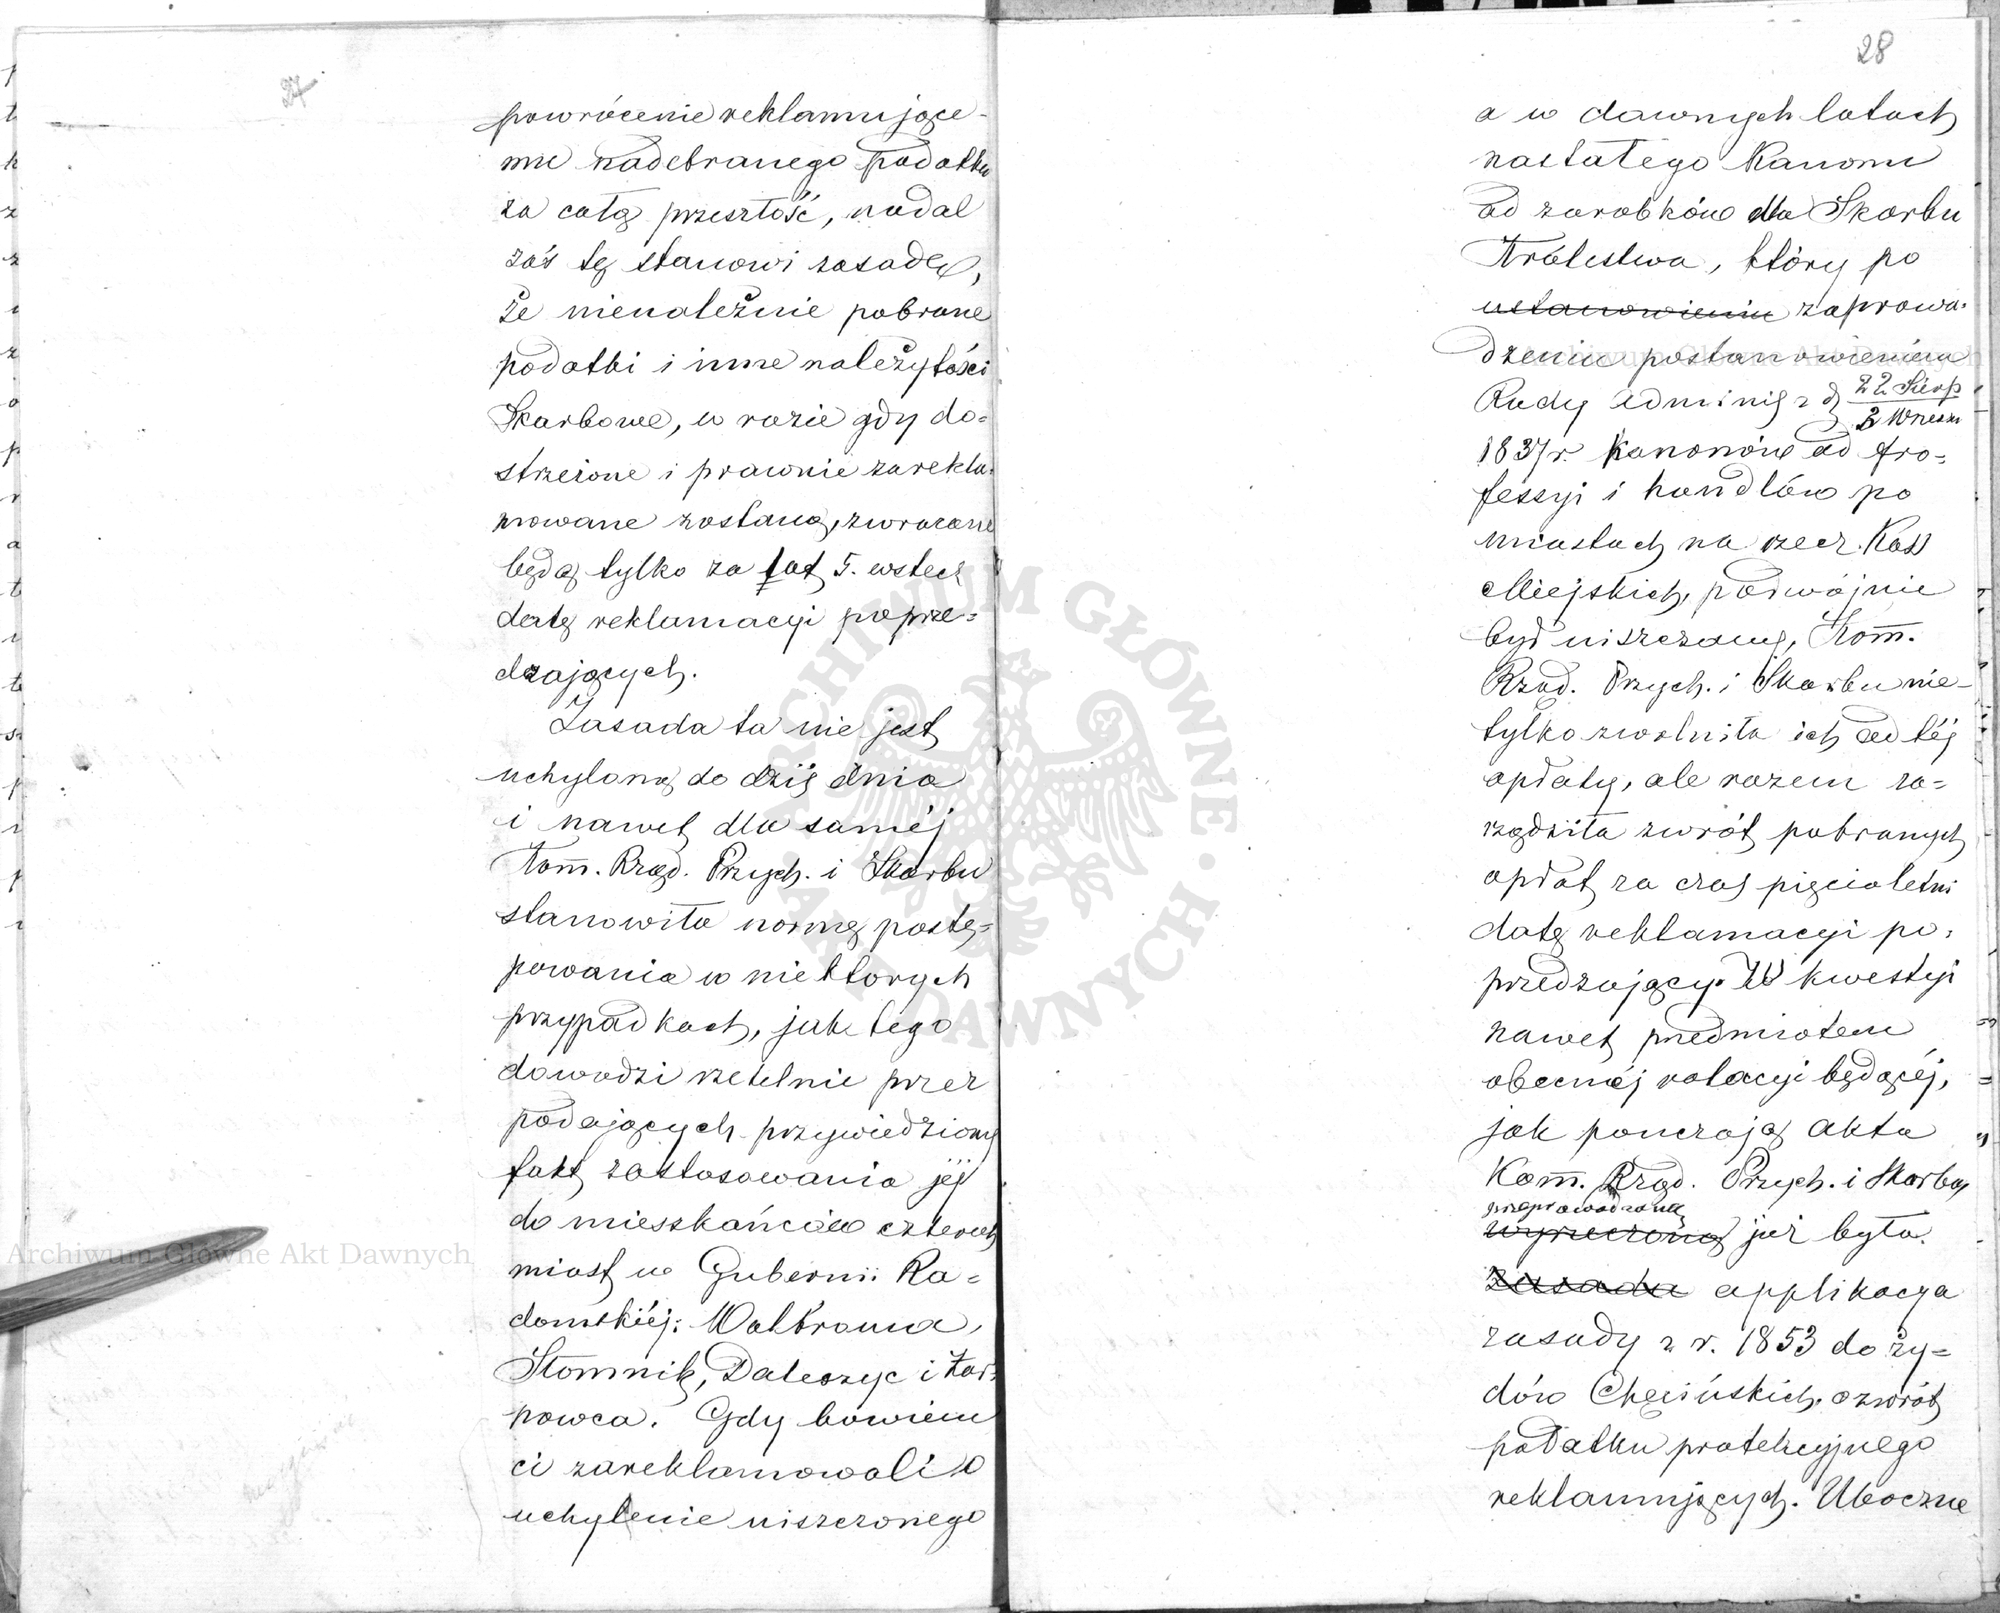 27
powrócenie reklamujące-
mu nadebranego podatku
za całą przeszłość, nadal
zaś tę stanowi zasadę,
że nienależnie pobrane
podatki i inne należytości
Skarbowe, w razie gdy do=
strzeżone i prawnie zarekla=
mowane zostaną, zwracane
będą tylko za lat 5. wstecz
datę reklamacyi poprze=
dzających.
Zasada ta nie jest
uchyloną do dziś dnia
i nawet dla saméj
Kom. Rząd. Przych. i Skarbu
stanowiła normę postę=
powania w niektorych
przypadkach, jak tego
dowodzi rzetelnie przez
podających przywiedziony
fakt zastosowania jéj
do mieszkańców czterech
miast w Gubernii Ra=
domskiéj: Wolbroma,
Słomnik, Daleszyc i Żar=
nowca. Gdy bowiem
ci zareklamowali o
uchylenie uiszczonego
28
a w dawnych latach
nastałego Kanonu
od zarobków dla Skarbu
Królestwa, który po
ustanowieniu zaprowa=
dzeniu postanowieniem
Rady Adminis z d 22 Sierp
3 Wrześn
1837 r. Kanonów od pro=
fessyi i handlów po
miastach na rzecz Kass
Miejskich, podwójnie
był uiszczany, Kom.
Rząd. Przych. i Skarbu nie=
tylko zwolniła ich od téj
opłaty, ale razem za=
rządziła zwrót pobranych
opłat za czas pięcioletni
datę reklamacyi po=
przedzający. W kwestyi
nawet przedmiotem
obecnéj relacyi będącéj,
jak pouczają akta
Kom. Rząd. Przych. i Skarbu,
przeprowadzoną
wyrzeczoną już była
zasada applikacya
zasady z r. 1853 do ży=
dów Chęcińskich o zwrót
podatku protekcyjnego
reklamujących. Uboczne
Archiwum Główne Akt Dawnych
Archiwum Główne Akt Dawnych
ARCHIWUM GŁÓWNE AKT DAWNYCH